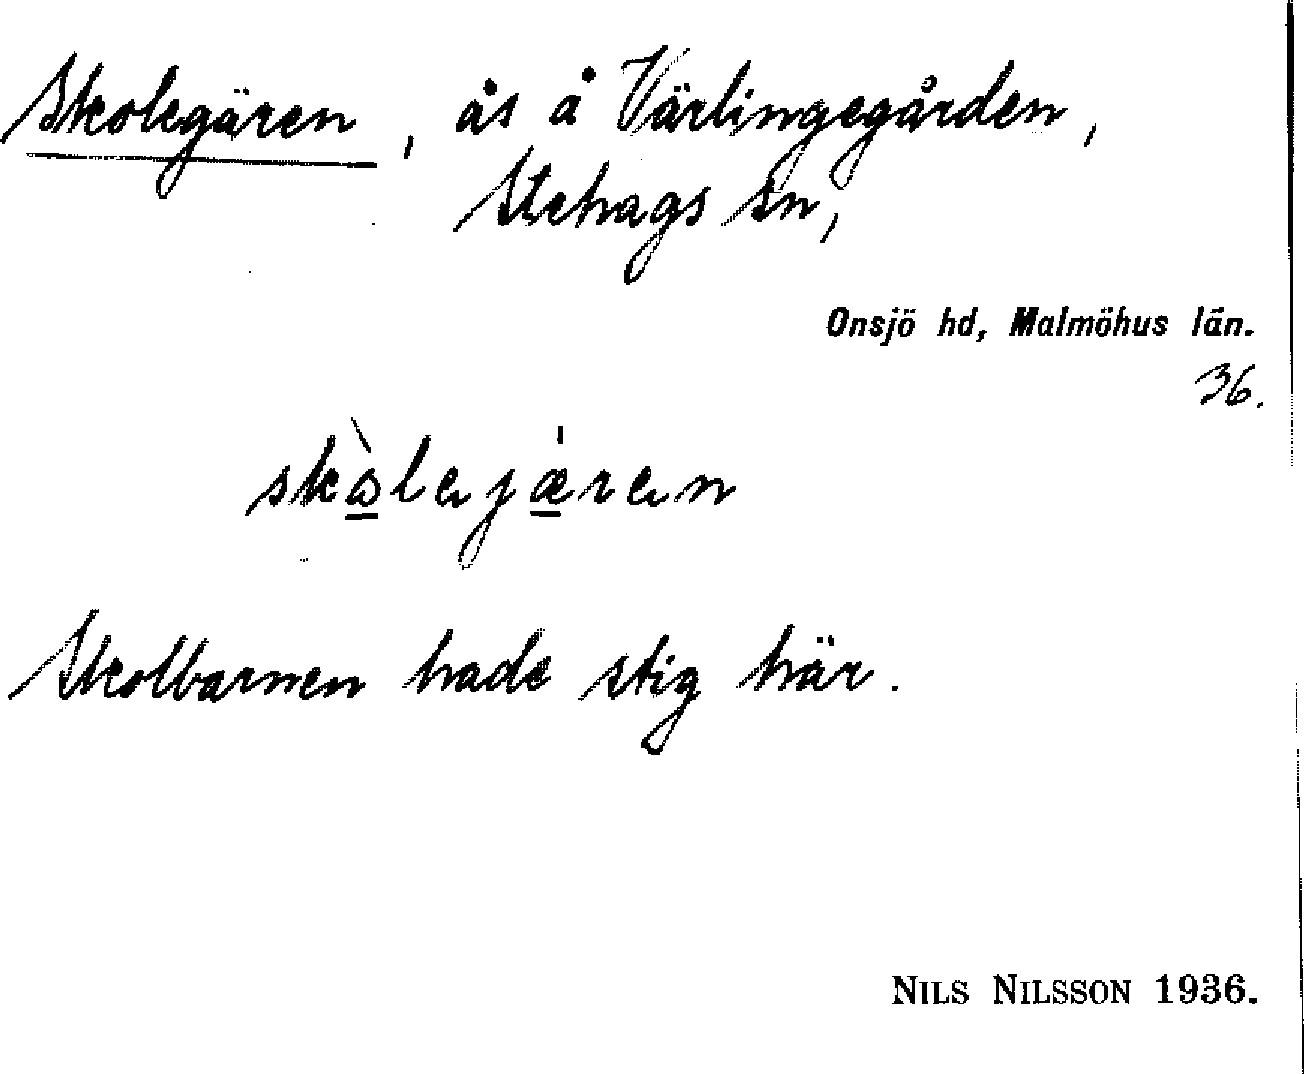 Skolegären, ås å Värlingegården,
Stehags sn,
Onsjö hd, Malmöhus län.
36.
skòlejǽren
Skolbarnen hade stig här.
NILS NILSSON 1936.